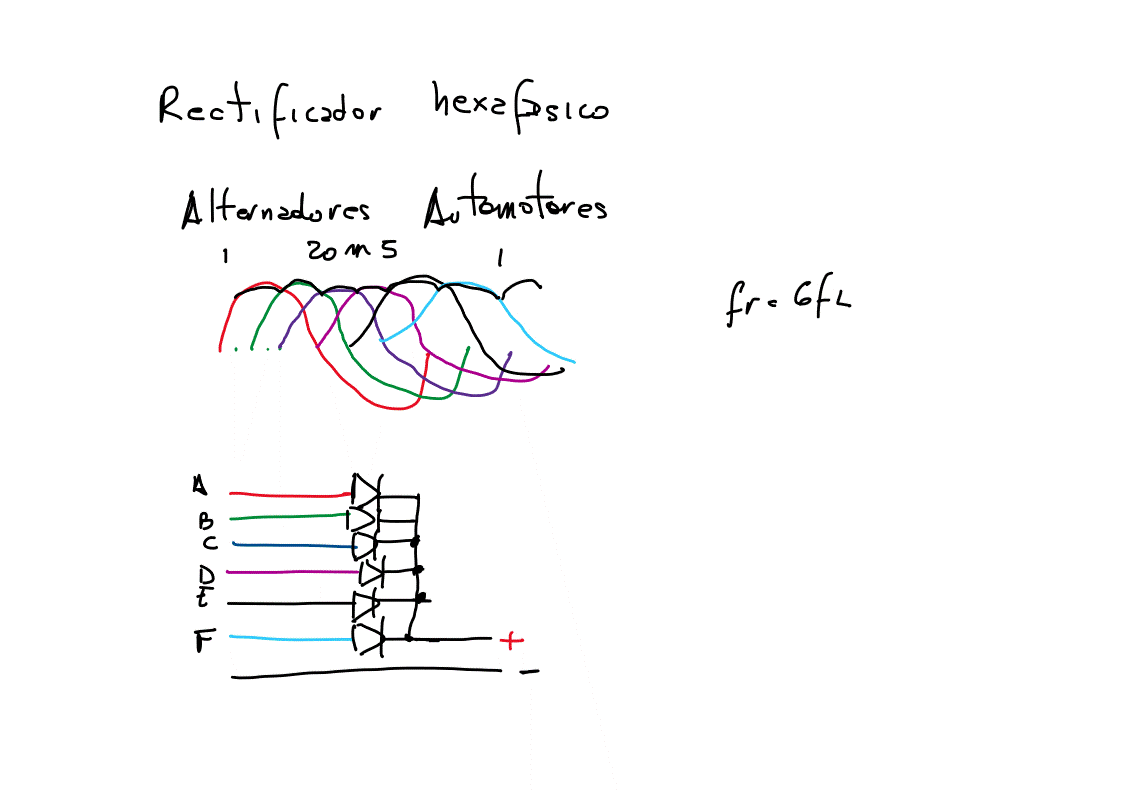 Rectificador hexafásico
Alternadores Automotores
1 20 m 5 1
fr = 6fL
A
B
C
D
E
F +
-